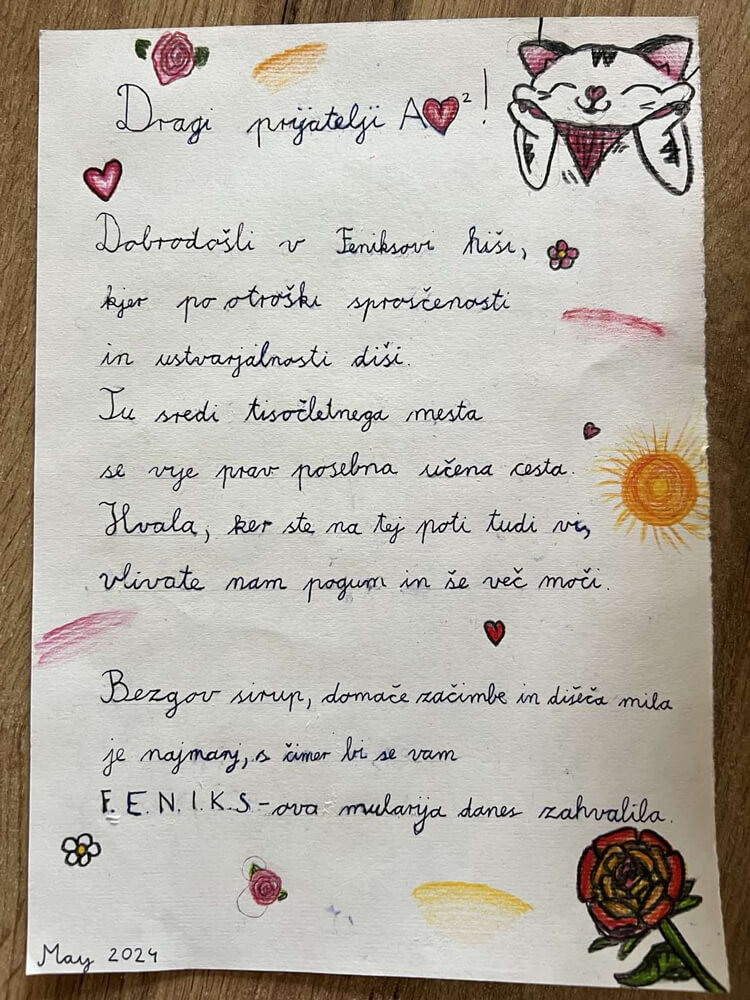 Dragi prijatelji A♥²!
Dobrodošli v Feniksovi hiši,
kjer po otroški sproščenosti
in ustvarjalnosti diši.
Tu sredi tisočletnega mesta
se vije prav posebna učena cesta.
Hvala, ker ste na tej poti tudi vi,
vlivate nam pogum in še več moči.
Bezgov sirup, domače začimbe in dišeča mila
je najmanj, s čimer bi se vam
F.E.N.I.K.S-ova mularija danes zahvalila.
May 2024